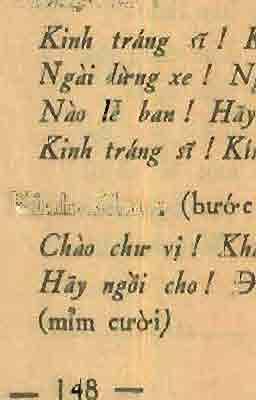 Kinh tráng sĩ ! K
Ngài dừng xe ! Ng
Nào lễ ban ! Hãy
Kinh tráng sĩ ! Kí
(bước
Chào chư vị ! Kh
Hãy ngồi cho ! Đ
(mỉm cười)
— 148 —